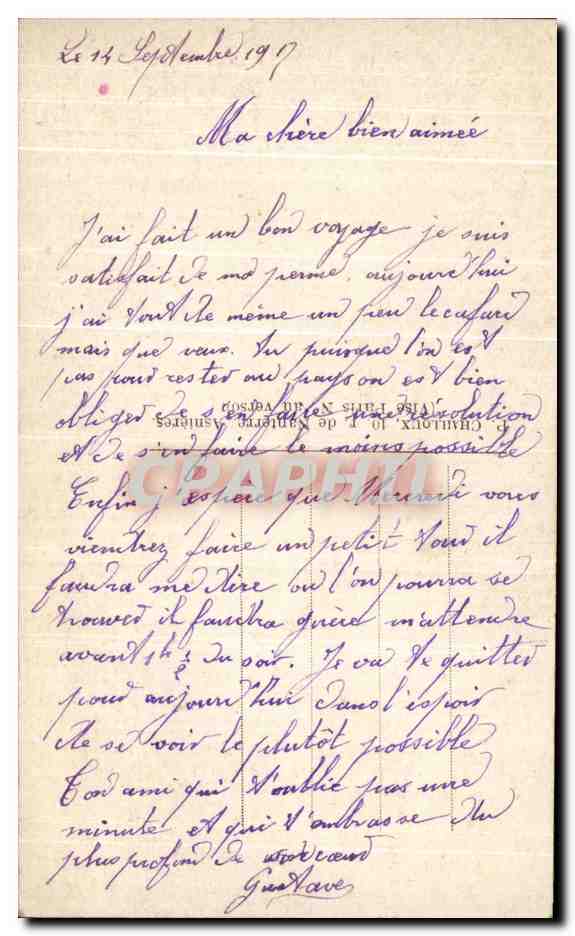 Le 14 Septembre 1917
Ma chère bien aimée
J'ai fait un bon voyage je suis
satisfait de ma perme. aujourd'hui
j'ai tout de même un peu le cafard
mais que veux. tu puisque l'on est
pas pour rester au pays on est bien
obliger de s'en faire une résolution
P. CHAILLOUX, 10, r. de Nanterre, Asnières
(Visé Paris N° au verso)
et de s'en faire le moins possible
CPAPHIL
Enfin j'espère que Mercredi vous
viendrez faire un petit tour il
faudra me dire ou l'on pourra se
trouver il faudra guère m'attendre
avant 1h 1/2 du soir. Je va te quitter
pour aujourd'hui dans l'espoir
de se voir le plutôt possible
Ton ami qui t'oublie pas une
minute et qui t'embrasse du
plus profond de coeur
Gustave